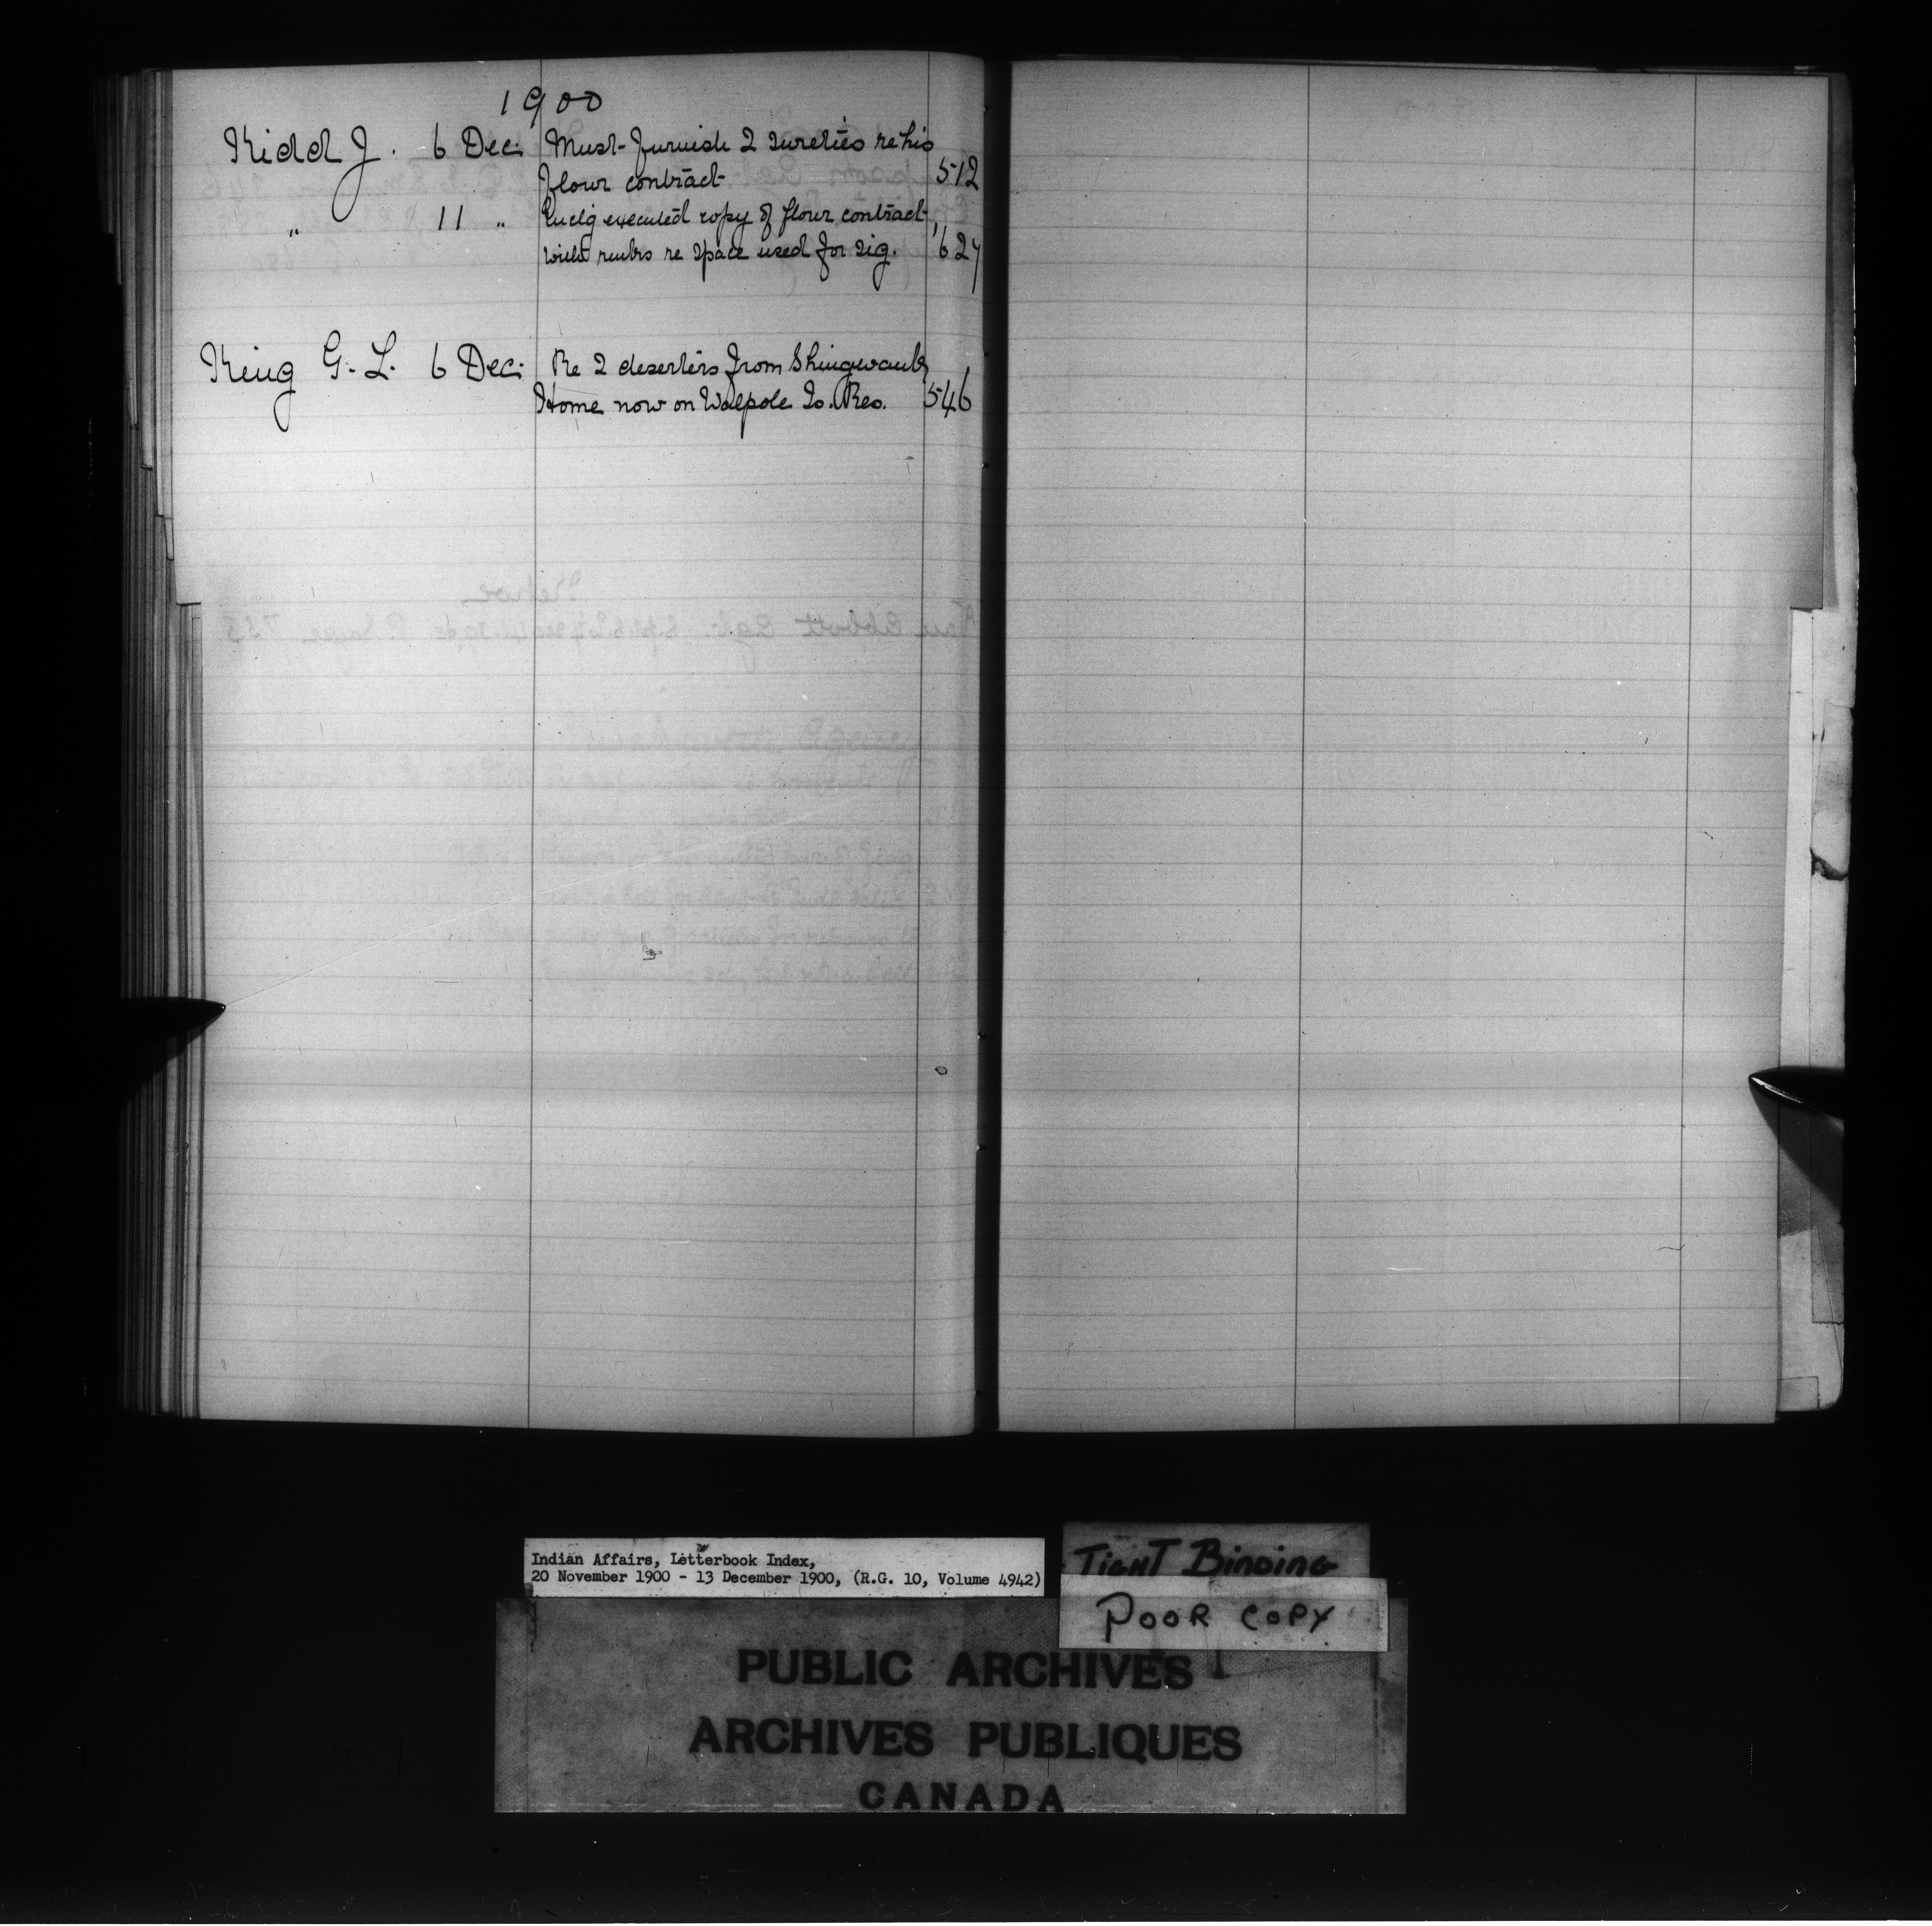 1900
Kidd J. 6 Dec: Must furnish 2 sureties re his
flour contract 512
" 11 " Encl'g executed copy of flour contract
with re space used for sig. 627
King G. L. 6 Dec: Re 2 deserters from Shingwauk
Home now on Walpole Is. Res. 546
Indian Affairs, Letterbook Index,
20 November 1900 - 13 December 1900, (R.G. 10, Volume 4942)
TIGHT BINDING
POOR COPY
PUBLIC ARCHIVES
ARCHIVES PUBLIQUES
CANADA